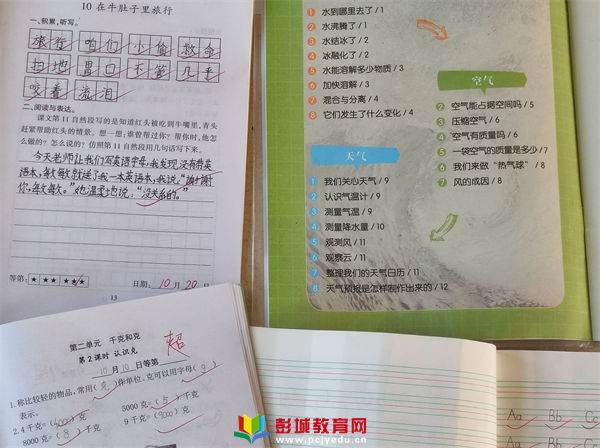 10 在牛肚子里旅行
一、积累,听写。
旅行 咱们 小偷 救命
扫地 胃口 不管 几乎
咬着 流泪
二、阅读与表达。
课文第11自然段写的是知道红头被吃到牛嘴里,青头
赶紧帮助红头的情景。想一想:谁曾帮过你?帮你时,他怎
么做的?怎么说的?仿照第11自然段用几句话写下来。
今天老师让我们写英语字母,我发现没有带英
语本,每文每就送了我一本英语本,我说:“谢谢
你,每文每。”她温柔地说:“没关系的。”
等第: ★★★ ★★★ 日期:10月20日
13
第二单元 千克和克
第2课时 认识克 超
10月10日等第
1.称比较轻的物品,常用(克)作单位,克可以用字母(g)
表示。
2.4千克=(4000)克 5000克=(5)千克
8000克=(8)千克 9千克=(9000)克
1 水到哪里去了 / 1
2 水沸腾了 / 1
3 水结冰了 / 2
4 冰融化了 / 2
5 水能溶解多少物质 / 3
6 加快溶解 / 3
7 混合与分离 / 4
8 它们发生了什么变化 / 4
天气
1 我们关心天气 / 9
2 认识气温计 / 9
3 测量气温 / 9
4 测量降水量 / 10
5 观测风 / 11
6 观察云 / 11
7 整理我们的天气日历 / 11
8 天气预报是怎样制作出来的 / 12
空气
2 空气能占据空间吗 / 5
3 压缩空气 / 6
4 空气有质量吗 / 6
5 一袋空气的质量是多少 / 7
6 我们来做“热气球” / 8
7 风的成因 / 8
Aa Bb Cc
Aa Bb Cc
彭城教育网
www.pcjyedu.cn